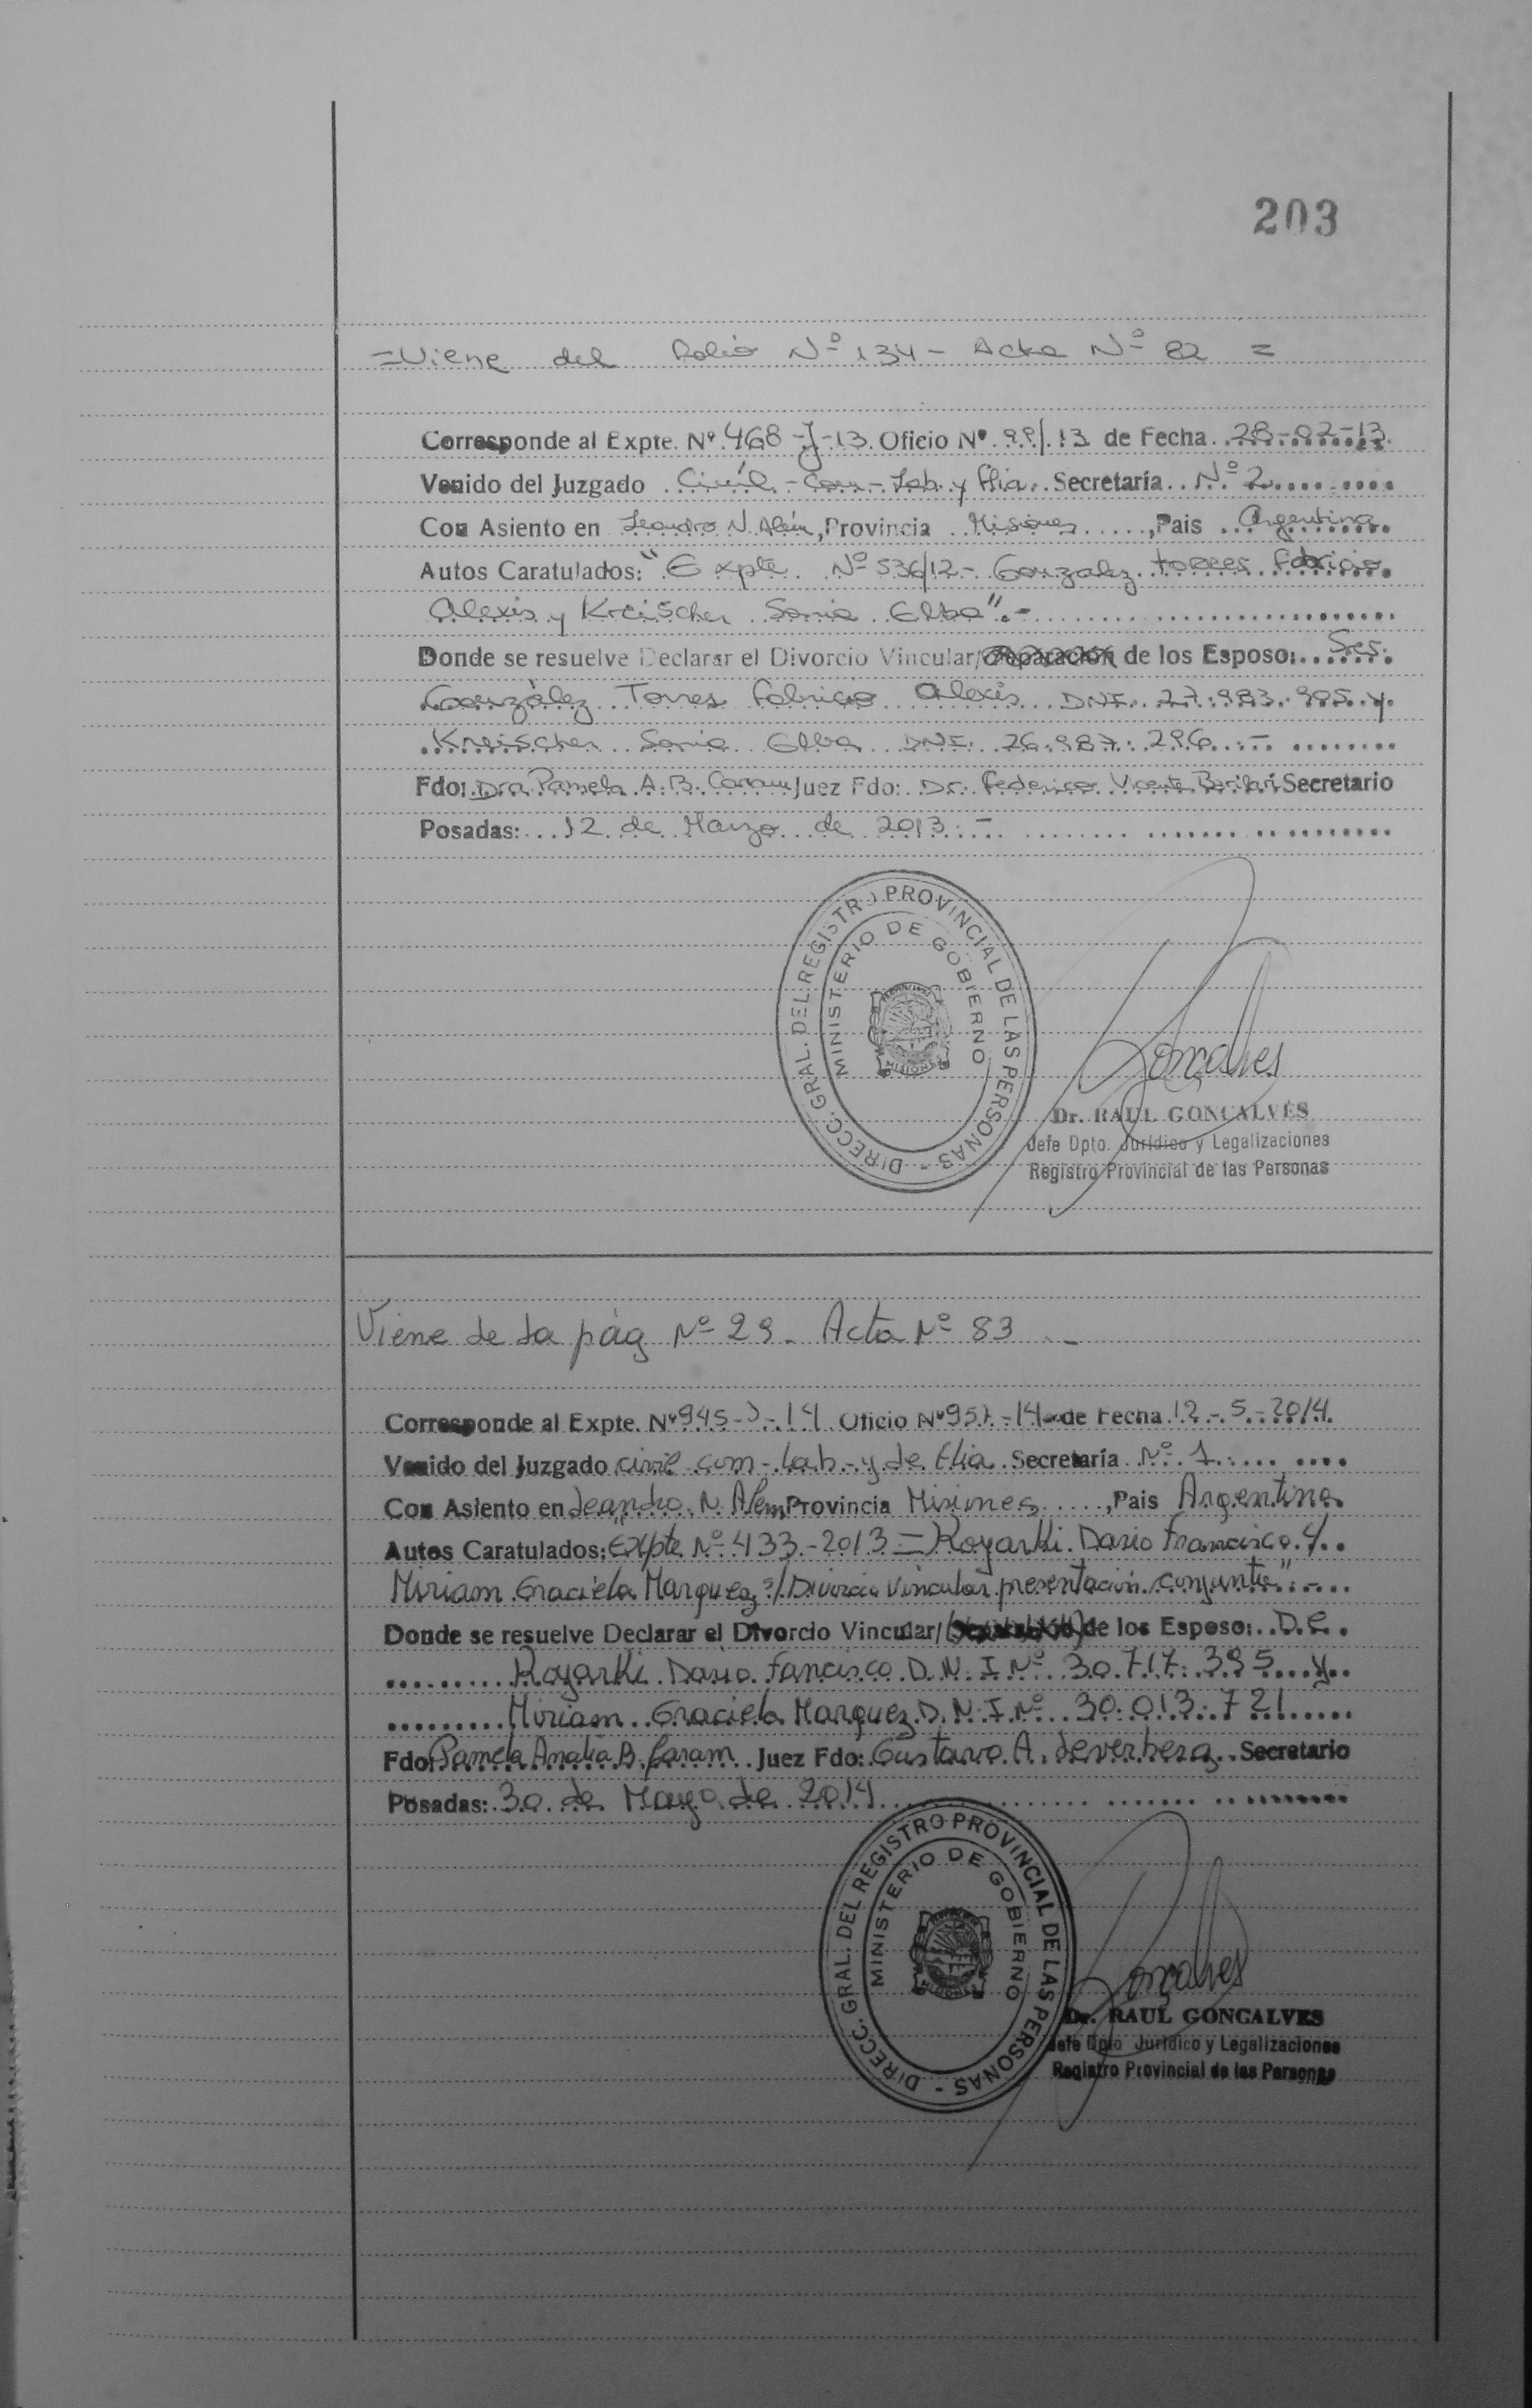 203
=Viene del Folio Nº 134 - Acta Nº 82 =
Corresponde al Expte. Nº 468-J-13. Oficio Nº 99/13 de Fecha 28-02-13
Venido del Juzgado Civíl - Com - Lab. y Flia. Secretaría Nº 2
Con Asiento en Leandro N. Além, Provincia Misiones, Pais Argentina
Autos Caratulados: "Expte. Nº 536/12 - Gonzalez torres Fabricio
Alexis y Kreischer Sonia Elba".-
Donde se resuelve Declarar el Divorcio Vincular/Separación de los Esposo: Sres.
González Torres Fabricio Alexis DNI. 27.983.905 y
Kreischer Sonia Elba DNI. 26.987.296.-
Fdo: Dra Pamela A. B. Caram Juez Fdo: Dr. Federico Vicente Secretario
Posadas: 12 de Marzo de 2013.-
DIRECC. GRAL. DEL REGISTRO PROVINCIAL DE LAS PERSONAS -
MINISTERIO DE GOBIERNO
MISIONES
Goncalves
Dr. RAUL GONCALVES
Jefe Dpto. Jurídico y Legalizaciones
Registro Provincial de las Personas
Viene de la pág Nº 29 - Acta Nº 83 -
Corresponde al Expte. Nº 945-J-14 Oficio Nº 957-14 de Fecha 12-5-2014
Venido del Juzgado civil com - lab - y de flia. Secretaría Nº 1
Con Asiento en Leandro N. Alem, Provincia Misiones, Pais Argentina
Autos Caratulados: "Expte Nº 433-2013 = Koyarki Dario Francisco y
Miriam Graciela Marquez s/ Divorcio Vincular presentación conjunta".-
Donde se resuelve Declarar el Divorcio Vincular/ de los Esposo: D.e.
Koyarki Dario Fancisco D.N.I Nº 30.717.395 y
Miriam Graciela Marquez D.N.I Nº 30.013.721
Fdo: Pamela Analia B. Caram Juez Fdo: Gustavo A. Secretario
Posadas: 30 de Mayo de 2014
DIRECC. GRAL. DEL REGISTRO PROVINCIAL DE LAS PERSONAS -
MINISTERIO DE GOBIERNO
MISIONES
Goncalves
Dr. RAUL GONCALVES
Jefe Dpto Jurídico y Legalizaciones
Registro Provincial de las Personas